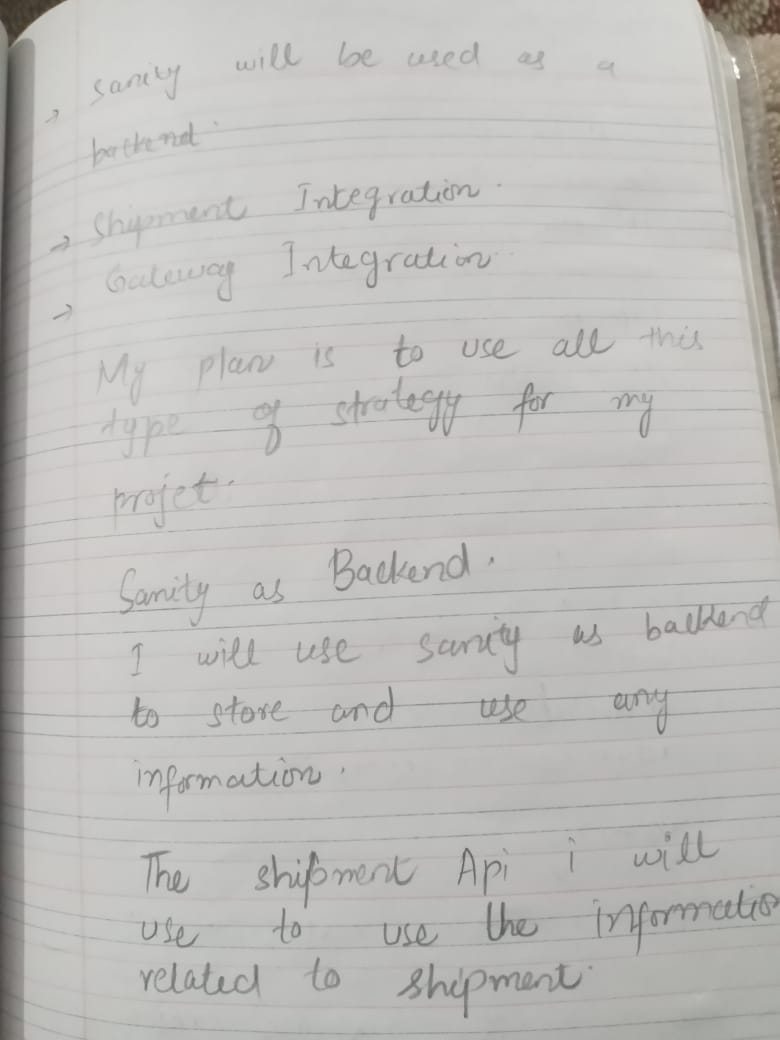 → Sanity will be used as a
backend.
→ Shipment Integration.
→ Gateway Integration.
My plan is to use all this
type of strategy for my
projet.
Sanity as Backend.
I will use sanity as backend
to store and use any
information.
The shipment Api i will
use to use the informatio
related to shipment.